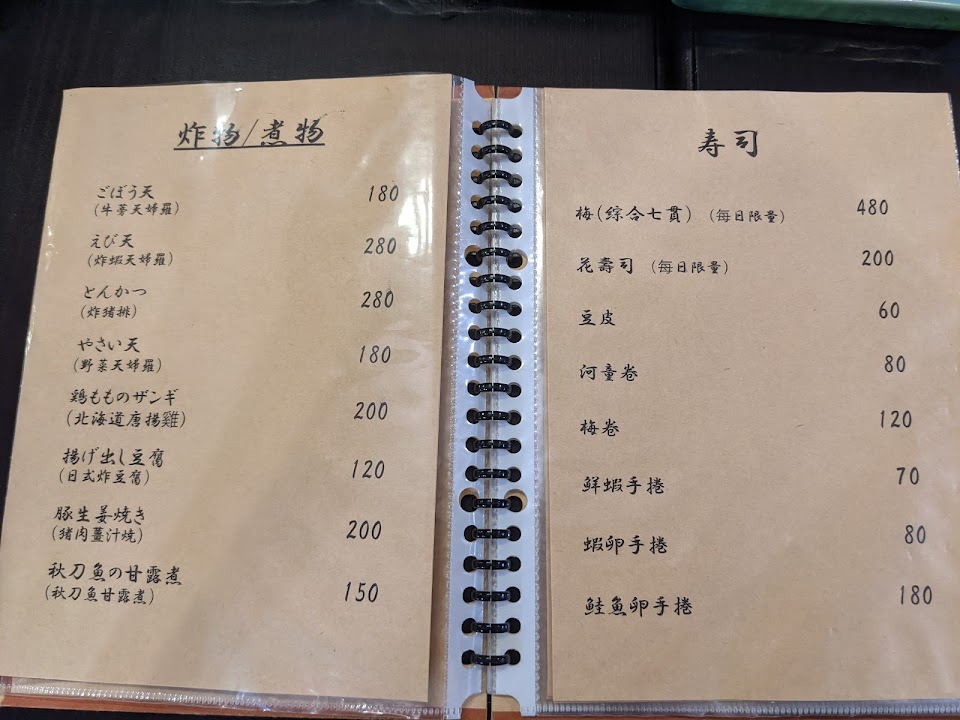 炸物/煮物
ごぼう天 180
(牛蒡天婦羅)
えび天 280
(炸蝦天婦羅)
とんかつ 280
(炸猪排)
やさい天 180
(野菜天婦羅)
鶏もものザンギ 200
(北海道唐揚雞)
揚げ出し豆腐 120
(日式炸豆腐)
豚生姜焼き 200
(猪肉薑汁燒)
秋刀魚の甘露煮 150
(秋刀魚甘露煮)
寿司
梅(綜合七貫) (每日限量) 480
花壽司 (每日限量) 200
豆皮 60
河童卷 80
梅卷 120
鮮蝦手捲 70
蝦卵手捲 80
鮭魚卵手捲 180